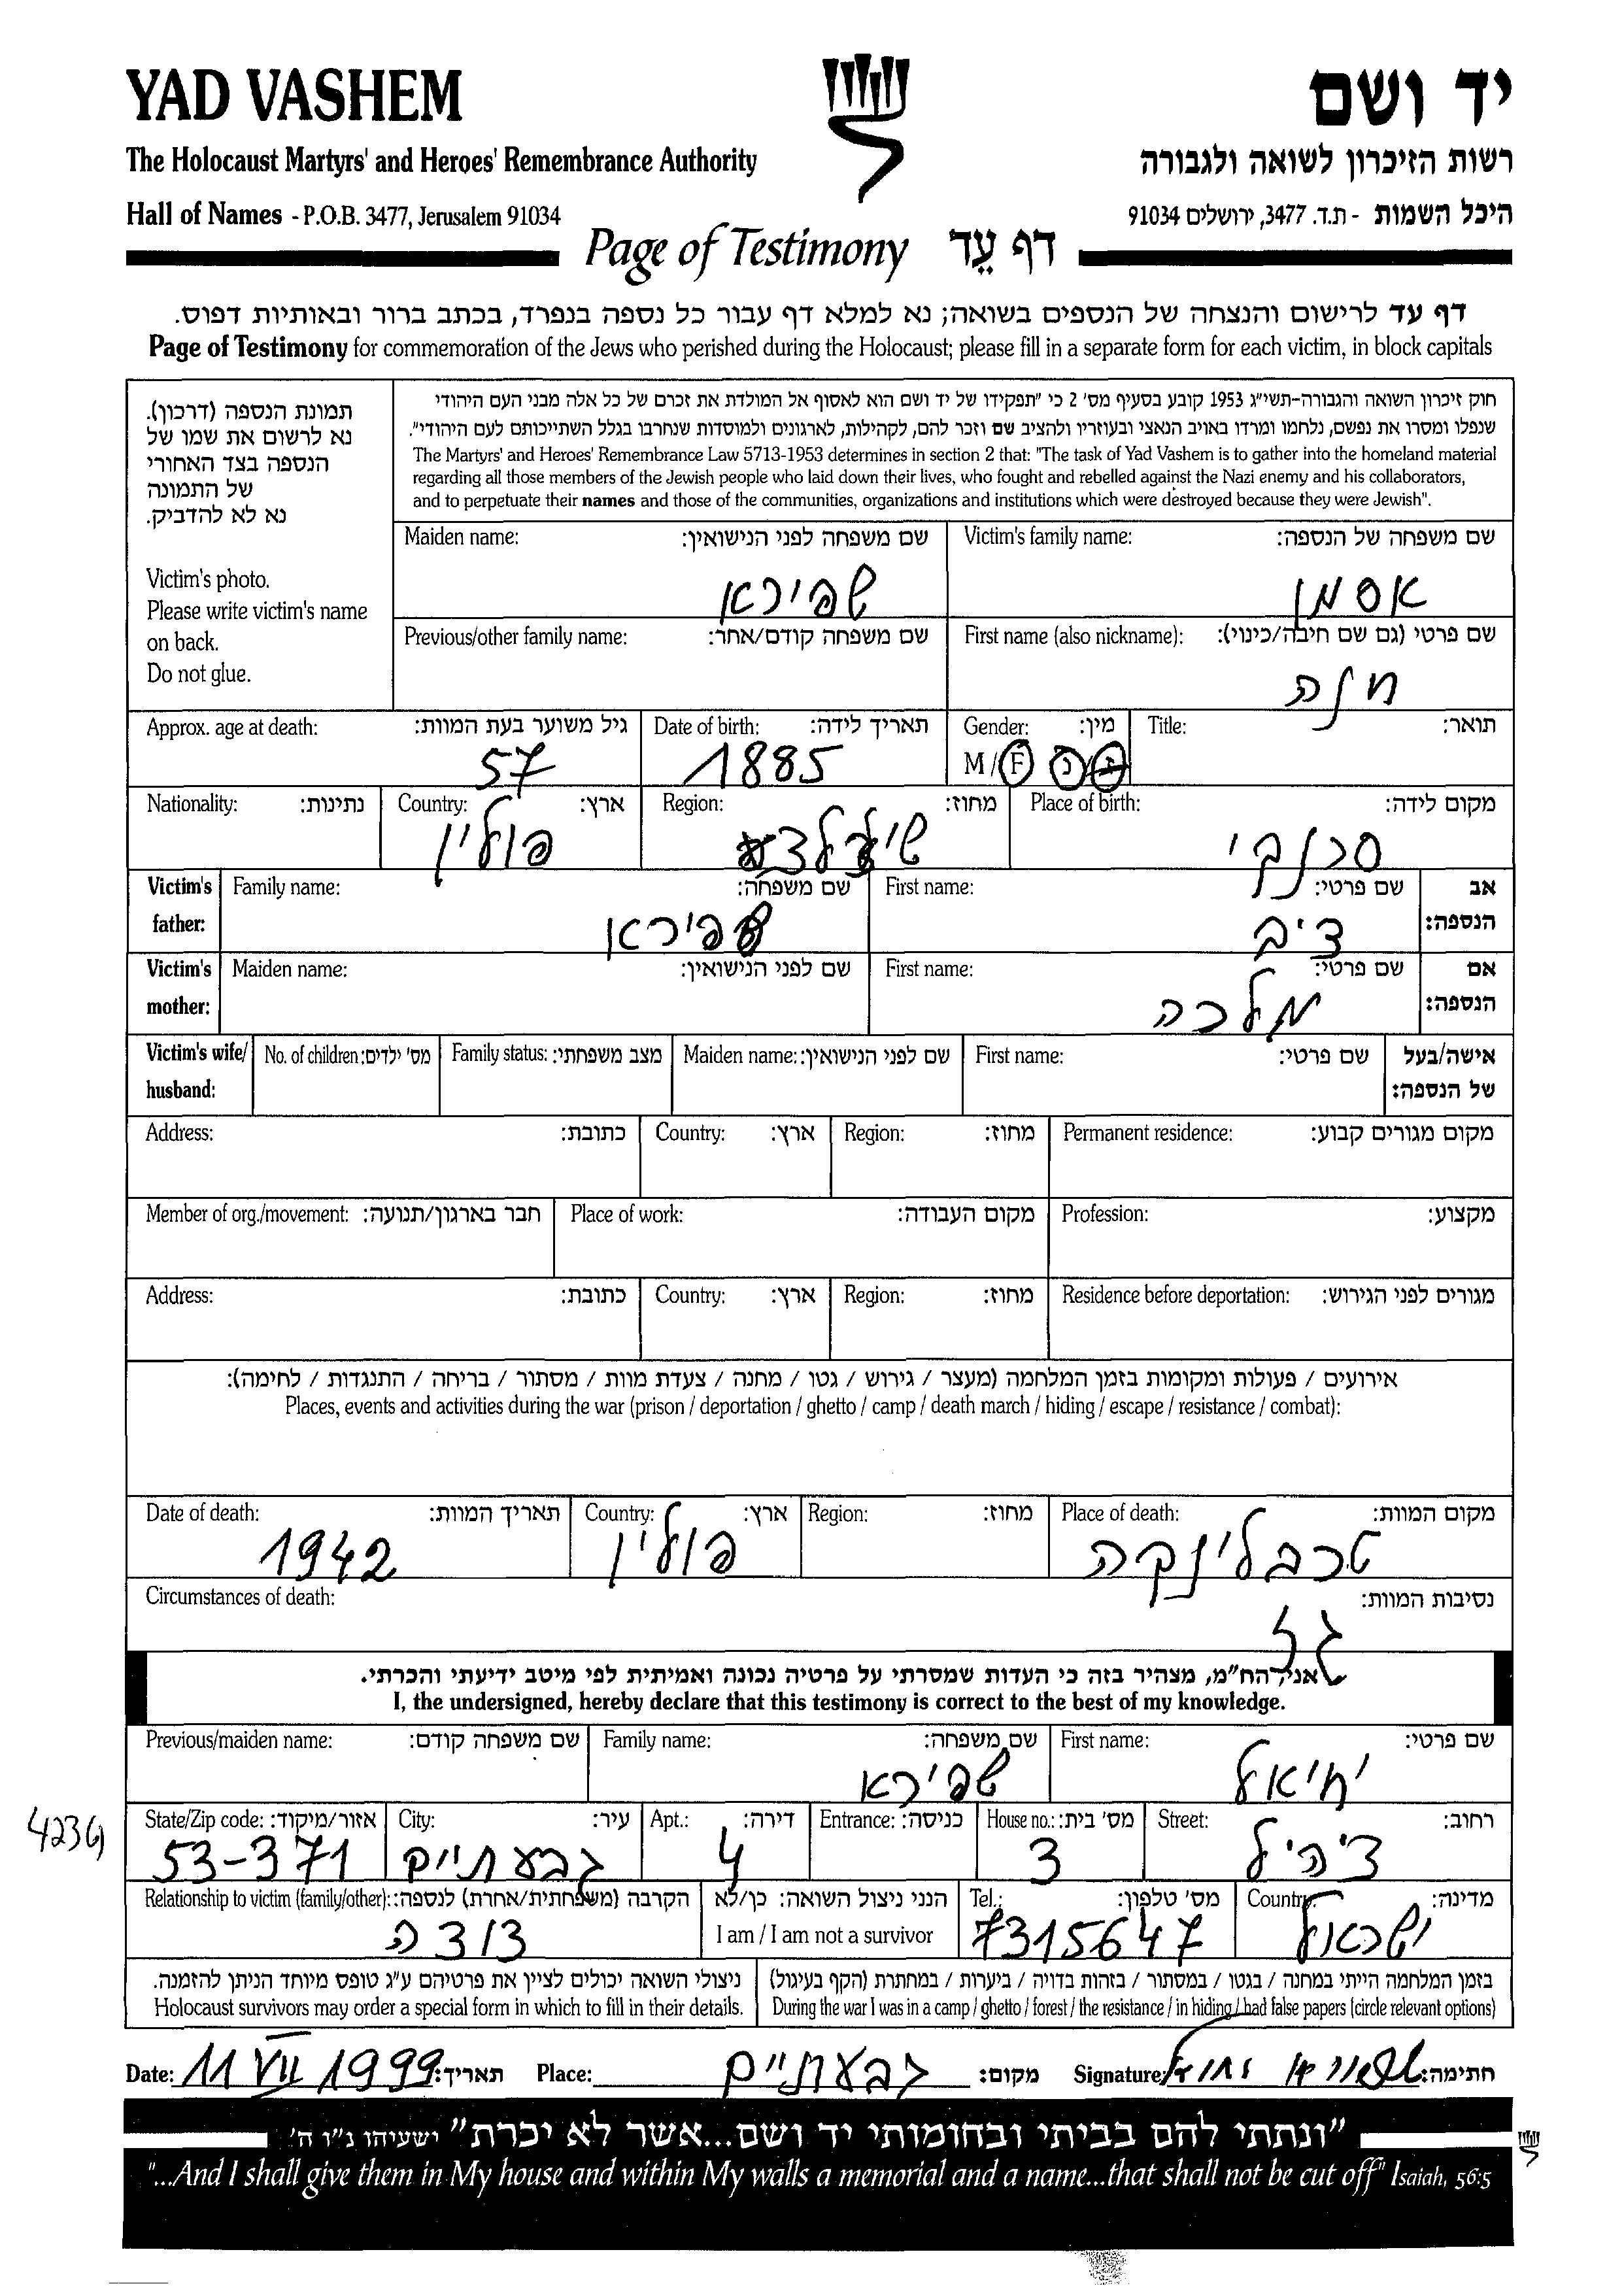 YAD VASHEM
יד ושם
The Holocaust Martyrs' and Heroes' Remembrance Authority
רשות הזיכרון לשואה ולגבורה
Hall of Names - P.O.B. 3477, Jerusalem 91034
היכל השמות - ת.ד. 3477, ירושלים 91034
Page of Testimony דף עֵד
דף עד לרישום והנצחה של הנספים בשואה; נא למלא דף עבור כל נספה בנפרד, בכתב ברור ובאותיות דפוס.
Page of Testimony for commemoration of the Jews who perished during the Holocaust; please fill in a separate form for each victim, in block capitals
תמונת הנספה (דרכון).
נא לרשום את שמו של
הנספה בצד האחורי
של התמונה
נא לא להדביק.
Victim's photo.
Please write victim's name
on back.
Do not glue.
חוק זיכרון השואה והגבורה-תשי"ג 1953 קובע בסעיף מס' 2 כי "תפקידו של יד ושם הוא לאסוף אל המולדת את זכרם של כל אלה מבני העם היהודי
שנפלו ומסרו את נפשם, נלחמו ומרדו באויב הנאצי ובעוזריו ולהציב שם וזכר להם, לקהילות, לארגונים ולמוסדות שנחרבו בגלל השתייכותם לעם היהודי".
The Martyrs' and Heroes' Remembrance Law 5713-1953 determines in section 2 that: "The task of Yad Vashem is to gather into the homeland material
regarding all those members of the Jewish people who laid down their lives, who fought and rebelled against the Nazi enemy and his collaborators,
and to perpetuate their names and those of the communities, organizations and institutions which were destroyed because they were Jewish".
Victim's family name: שם משפחה של הנספה:
אסמן
Maiden name: שם משפחה לפני הנישואין:
שפירא
First name (also nickname): שם פרטי (גם שם חיבה/כינוי):
חנה
Previous/other family name: שם משפחה קודם/אחר:
Title: תואר:
Gender: מין:
M / F ז/נ
Date of birth: תאריך לידה:
1885
Approx. age at death: גיל משוער בעת המוות:
57
Place of birth: מקום לידה:
Region: מחוז:
Country: ארץ:
פולין
Nationality: נתינות:
Victim's father: אב הנספה:
First name: שם פרטי:
צבי
Family name: שם משפחה:
שפירא
Victim's mother: אם הנספה:
First name: שם פרטי:
מלכה
Maiden name: שם לפני הנישואין:
Victim's wife/ husband: אישה/בעל של הנספה:
First name: שם פרטי:
Maiden name: שם לפני הנישואין:
Family status: מצב משפחתי:
No. of children: מס' ילדים:
Permanent residence: מקום מגורים קבוע:
Region: מחוז:
Country: ארץ:
Address: כתובת:
Profession: מקצוע:
Place of work: מקום העבודה:
Member of org./movement: חבר בארגון/תנועה:
Residence before deportation: מגורים לפני הגירוש:
Region: מחוז:
Country: ארץ:
Address: כתובת:
אירועים / פעולות ומקומות בזמן המלחמה (מעצר / גירוש / גטו / מחנה / צעדת מוות / מסתור / בריחה / התנגדות / לחימה):
Places, events and activities during the war (prison / deportation / ghetto / camp / death march / hiding / escape / resistance / combat):
Place of death: מקום המוות:
טרבלינקה
Region: מחוז:
Country: ארץ:
פולין
Date of death: תאריך המוות:
1942
Circumstances of death: נסיבות המוות:
גז
אני, הח"מ, מצהיר בזה כי העדות שמסרתי על פרטיה נכונה ואמיתית לפי מיטב ידיעתי והכרתי.
I, the undersigned, hereby declare that this testimony is correct to the best of my knowledge.
First name: שם פרטי:
יחיאל
Family name: שם משפחה:
שפירא
Previous/maiden name: שם משפחה קודם:
Street: רחוב:
צה"ל
House no.: מס' בית:
3
Entrance: כניסה:
Apt.: דירה:
4
City: עיר:
גבעתיים
State/Zip code: אזור/מיקוד:
53-371
Country: מדינה:
ישראל
Tel.: מס' טלפון:
7315647
הנני ניצול השואה: כן/לא
I am / I am not a survivor
Relationship to victim (family/other): הקרבה (משפחתית/אחרת) לנספה:
דודה
בזמן המלחמה הייתי במחנה / בגטו / במסתור / בזהות בדויה / ביערות / במחתרת (הקף בעיגול)
During the war I was in a camp / ghetto / forest / the resistance / in hiding / had false papers (circle relevant options)
ניצולי השואה יכולים לציין את פרטיהם ע"ג טופס מיוחד הניתן להזמנה.
Holocaust survivors may order a special form in which to fill in their details.
Date: 11 VII 1999 תאריך: Place: גבעתיים מקום: Signature: חתימה:
"ונתתי להם בביתי ובחומותי יד ושם...אשר לא יכרת" ישעיהו נ"ו ה'
"...And I shall give them in My house and within My walls a memorial and a name...that shall not be cut off" Isaiah, 56:5